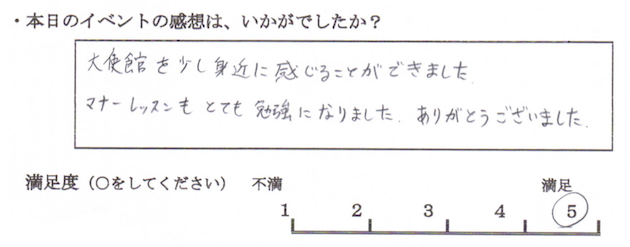 ・本日のイベントの感想は、いかがでしたか？
大使館を少し身近に感じることができました.
マナーレッスンも とても 勉強になりました. ありがとうございました.
満足度（○をしてください） 不満 満足
1 2 3 4 5